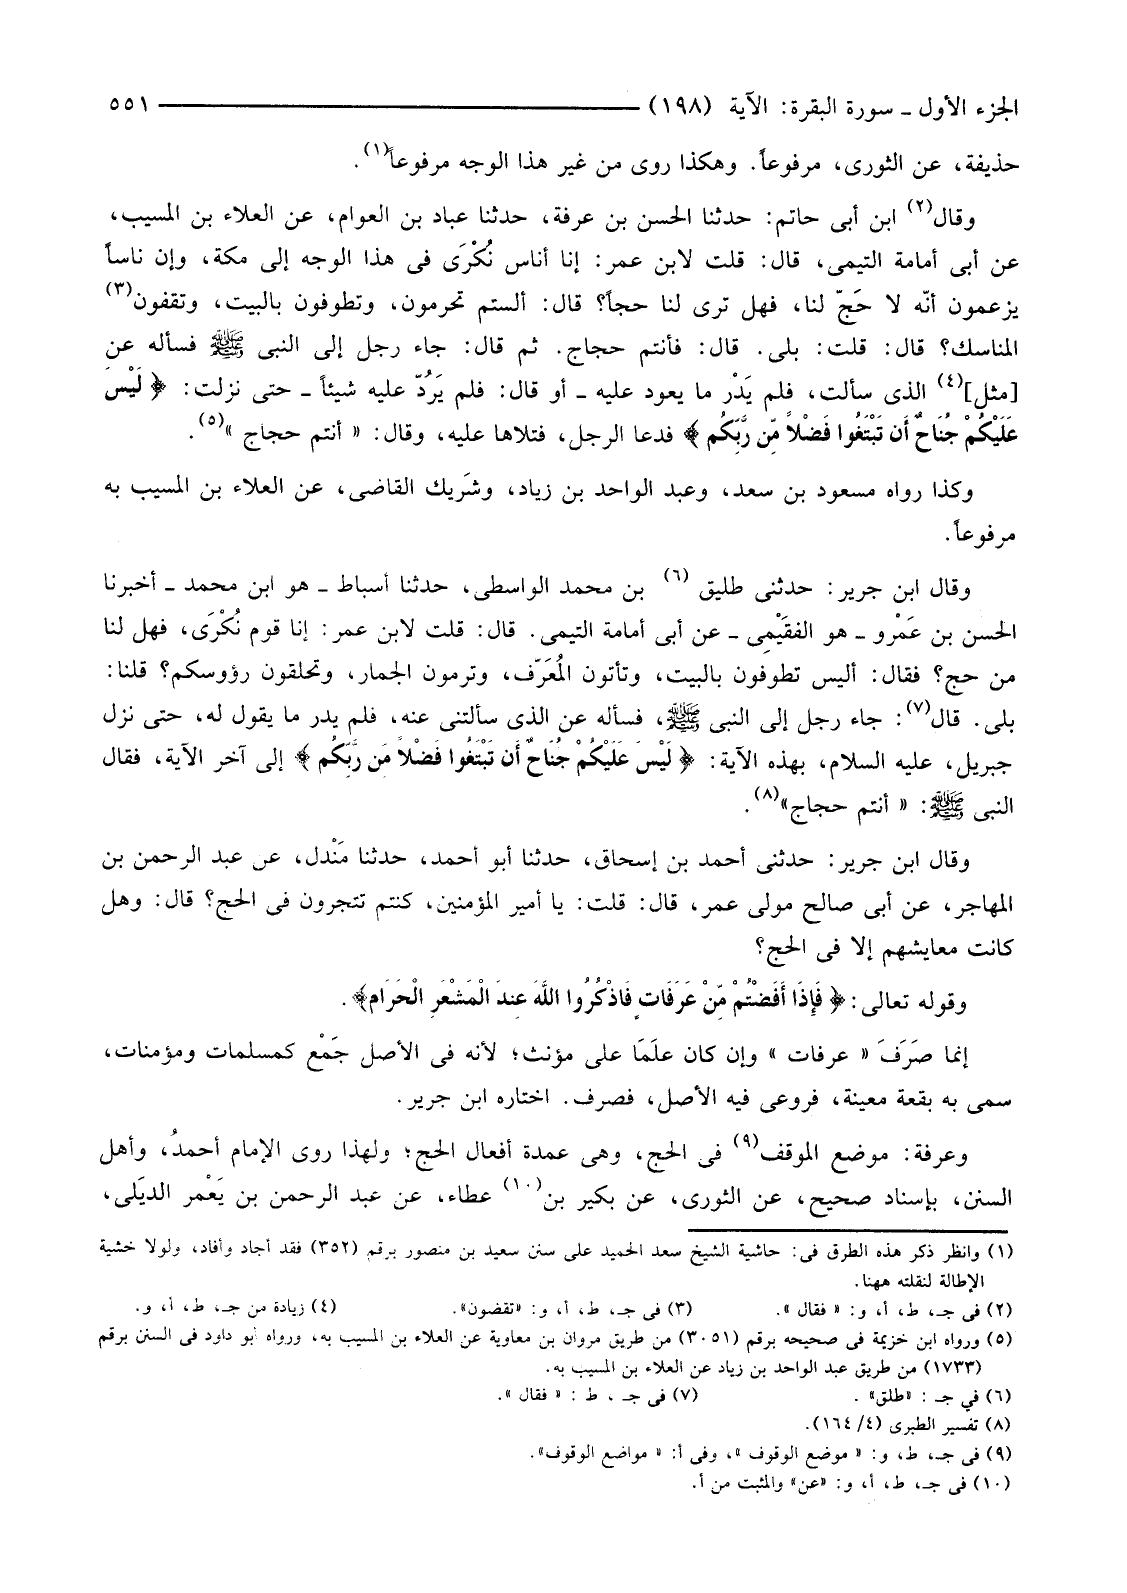 الجزء الأول ـ سورة البقرة: الآية (١٩٨) ٥٥١
حذيفة، عن الثورى، مرفوعاً. وهكذا روى من غير هذا الوجه مرفوعاً(١).
وقال(٢) ابن أبى حاتم: حدثنا الحسن بن عرفة، حدثنا عباد بن العوام، عن العلاء بن المسيب،
عن أبى أمامة التيمى، قال: قلت لابن عمر: إنا أناس نُكْرَى فى هذا الوجه إلى مكة، وإن ناساً
يزعمون أنّه لا حَجّ لنا، فهل ترى لنا حجاً؟ قال: ألستم تحرمون، وتطوفون بالبيت، وتقفون(٣)
المناسك؟ قال: قلت: بلى. قال: فأنتم حجاج. ثم قال: جاء رجل إلى النبى ﷺ فسأله عن
[مثل](٤) الذى سألت، فلم يَدْر ما يعود عليه ـ أو قال: فلم يَرُدّ عليه شيئاً ـ حتى نزلت: ﴿ لَيْسَ
عَلَيْكُمْ جُنَاحٌ أَن تَبْتَغُوا فَضْلاً مِّن رَّبِّكُم ﴾ فدعا الرجل، فتلاها عليه، وقال: « أنتم حجاج »(٥).
وكذا رواه مسعود بن سعد، وعبد الواحد بن زياد، وشَريك القاضى، عن العلاء بن المسيب به
مرفوعاً.
وقال ابن جرير: حدثنى طليق (٦) بن محمد الواسطى، حدثنا أسباط ـ هو ابن محمد ـ أخبرنا
الحسن بن عَمْرو ـ هو الفقَيْمِى ـ عن أبى أمامة التيمى. قال: قلت لابن عمر: إنا قوم نُكْرَى، فهل لنا
من حج؟ فقال: أليس تطوفون بالبيت، وتأتون المُعَرّف، وترمون الجمار، وتحلقون رؤوسكم؟ قلنا:
بلى. قال(٧): جاء رجل إلى النبى ﷺ، فسأله عن الذى سألتنى عنه، فلم يدر ما يقول له، حتى نزل
جبريل، عليه السلام، بهذه الآية: ﴿ لَيْسَ عَلَيْكُمْ جُنَاحٌ أَن تَبْتَغُوا فَضْلاً مِّن رَّبِّكُم ﴾ إلى آخر الآية، فقال
النبى ﷺ: « أنتم حجاج»(٨).
وقال ابن جرير: حدثنى أحمد بن إسحاق، حدثنا أبو أحمد، حدثنا مَنْدل، عن عبد الرحمن بن
المهاجر، عن أبى صالح مولى عمر، قال: قلت: يا أمير المؤمنين، كنتم تتجرون فى الحج؟ قال: وهل
كانت معايشهم إلا فى الحج؟
وقوله تعالى: ﴿ فَإِذَا أَفَضْتُمْ مِّنْ عَرَفَاتٍ فَاذْكُرُوا اللَّهَ عِندَ الْمَشْعَرِ الْحَرَام﴾.
إنما صَرَفَ « عرفات » وإن كان علَمَا على مؤنث؛ لأنه فى الأصل جَمْع كمسلمات ومؤمنات،
سمى به بقعة معينة، فروعى فيه الأصل، فصرف. اختاره ابن جرير.
وعرفة: موضع الموقف(٩) فى الحج، وهى عمدة أفعال الحج؛ ولهذا روى الإمام أحمدُ، وأهل
السنن، بإسناد صحيح، عن الثورى، عن بكير بن(١٠) عطاء، عن عبد الرحمن بن يَعْمر الديَلى،
(١) وانظر ذكر هذه الطرق فى: حاشية الشيخ سعد الحميد على سنن سعيد بن منصور برقم (٣٥٢) فقد أجاد وأفاد، ولولا خشية
الإطالة لنقلته ههنا.
(٢) فى جـ، ط، أ، و: « فقال ». (٣) فى جـ، ط، أ، و: «تقضون». (٤) زيادة من جـ، ط، أ، و.
(٥) ورواه ابن خزيمة فى صحيحه برقم (٣٠٥١) من طريق مروان بن معاوية عن العلاء بن المسيب به، ورواه أبو داود فى السنن برقم
(١٧٣٣) من طريق عبد الواحد بن زياد عن العلاء بن المسيب به.
(٦) في جـ : «طلق» . (٧) فى جـ ، ط : « فقال ».
(٨) تفسير الطبرى (٤/ ١٦٤).
(٩) فى جـ، ط، و: « موضع الوقوف »، وفى أ: « مواضع الوقوف».
(١٠) فى جـ، ط، أ، و: «عن» والمثبت من أ.